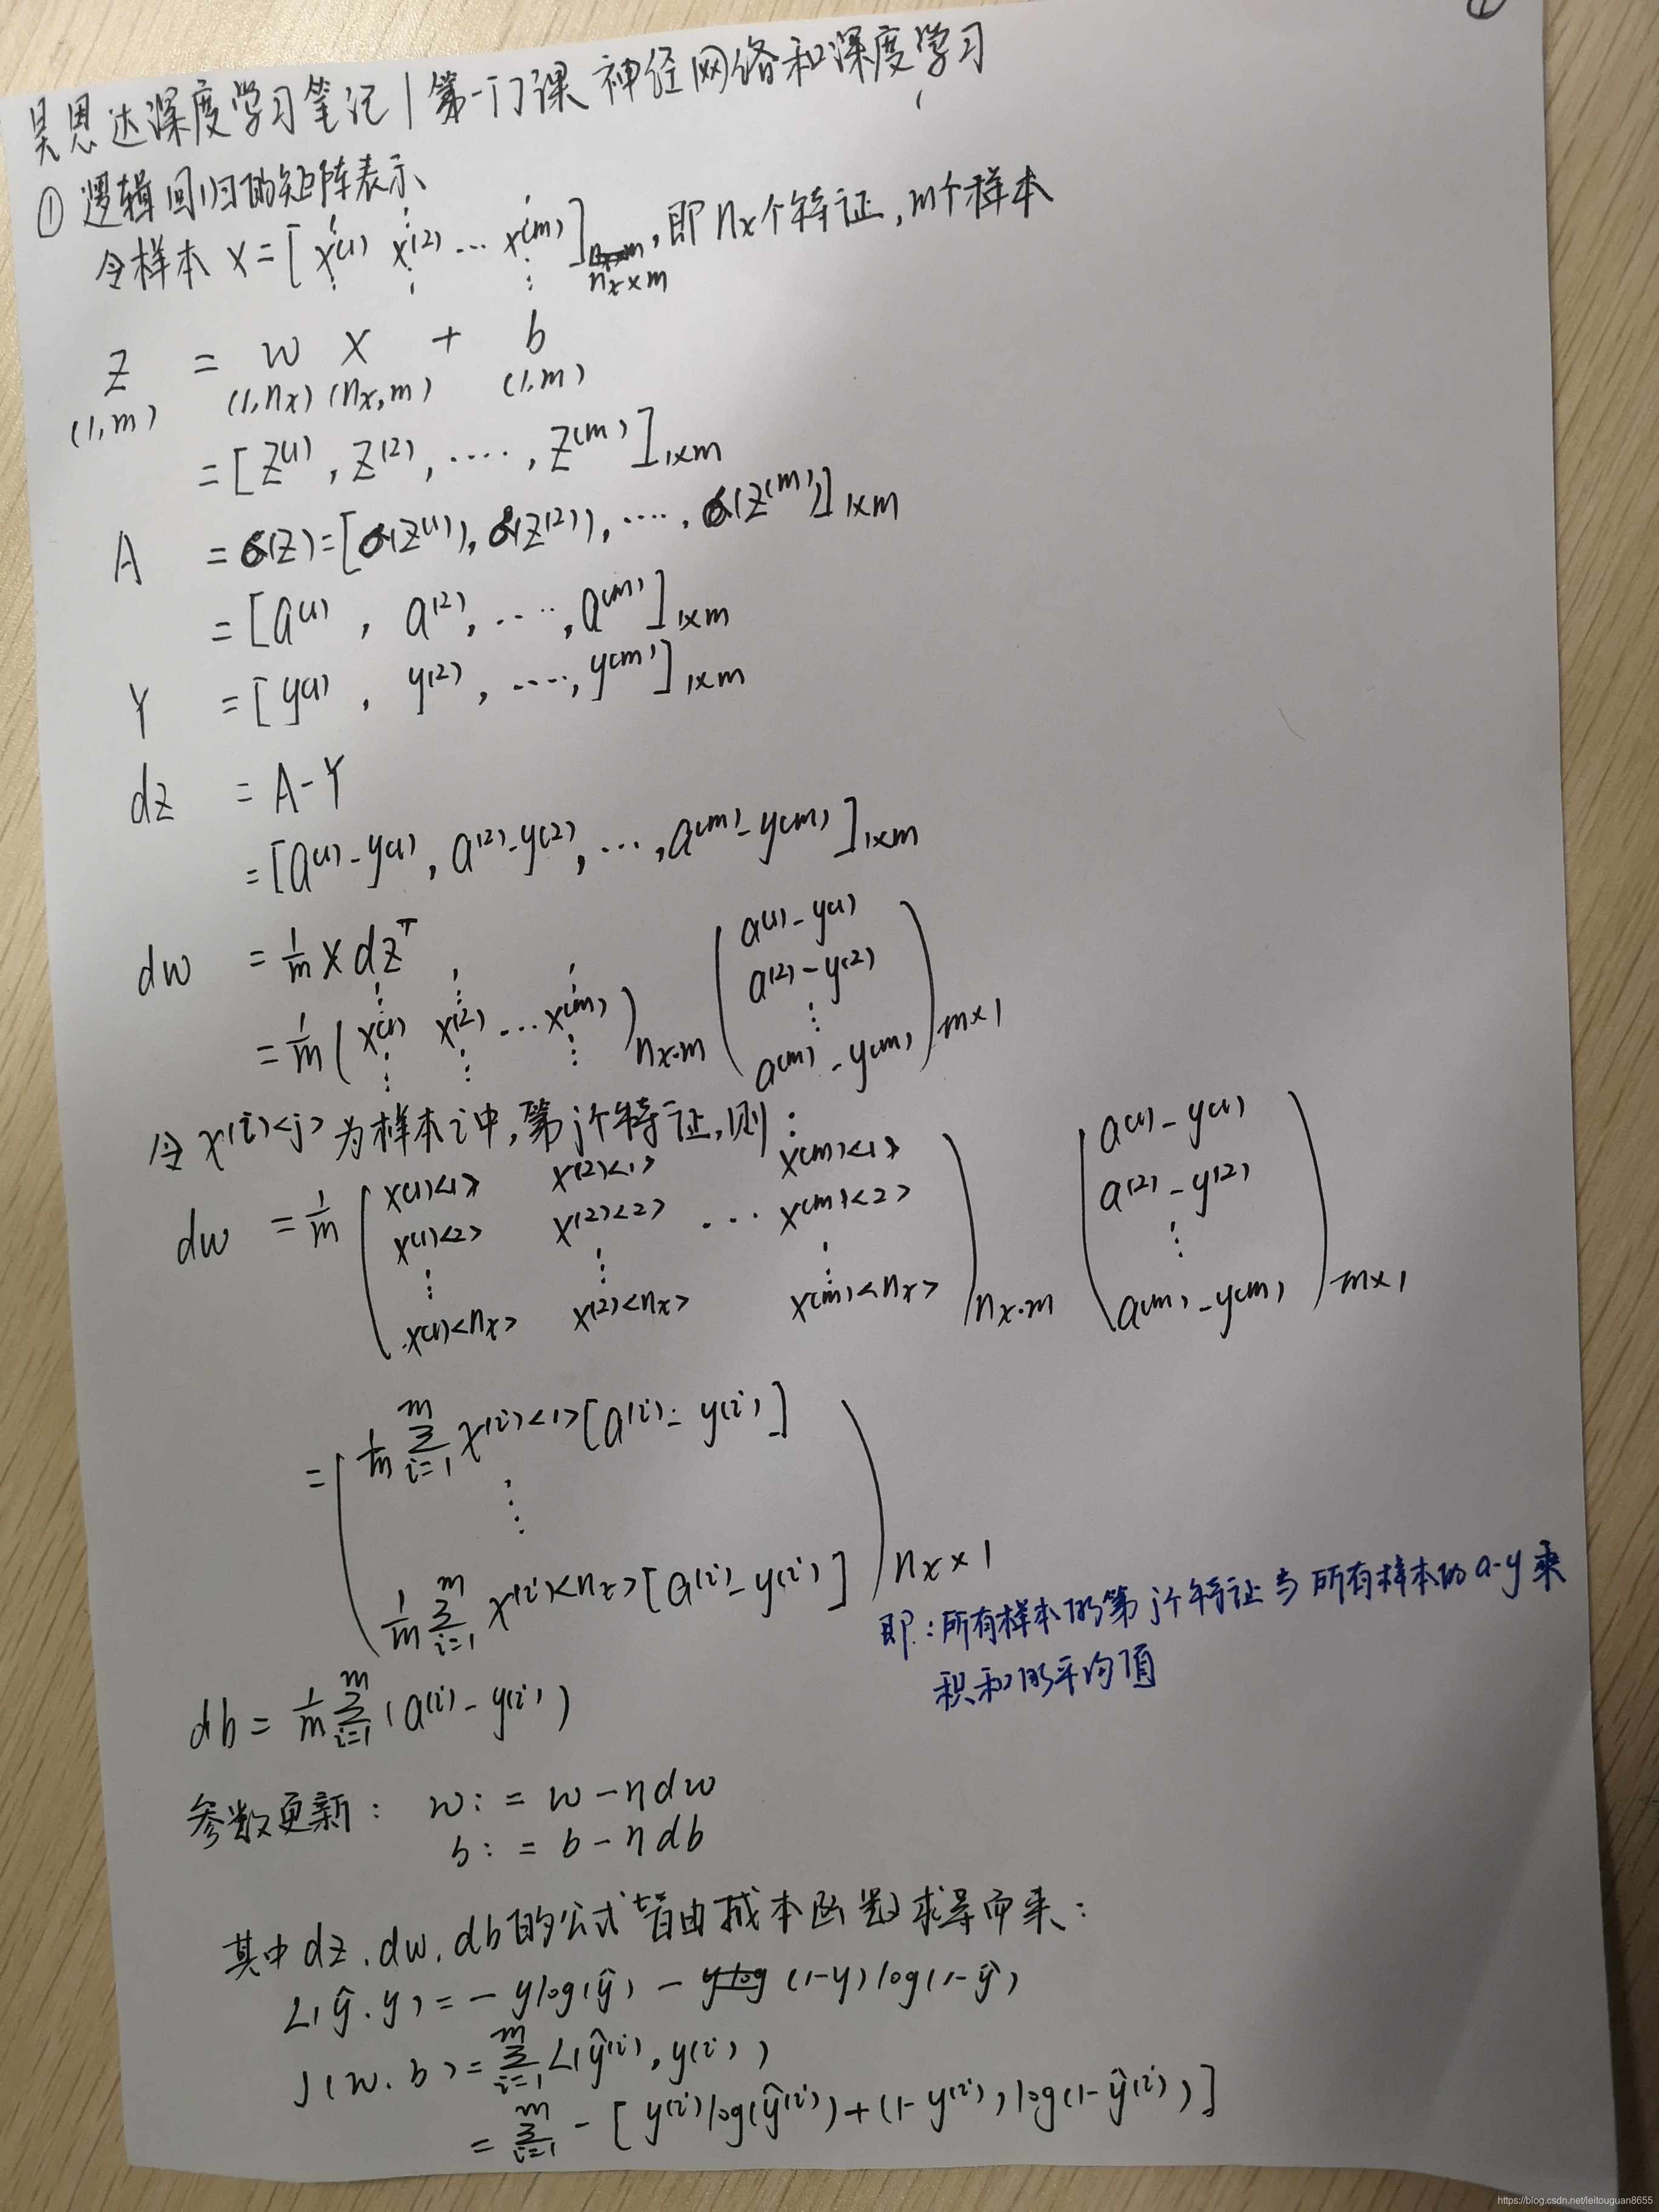 ①
吴恩达深度学习笔记 | 第一门课 神经网络和深度学习
① 逻辑回归的矩阵表示
令样本 X = [ x⁽¹⁾ x⁽²⁾ … x⁽ᵐ⁾ ] nₓ×m, 即 nₓ个特证, m个样本
Z = w X + b
(1,m) (1,nₓ) (nₓ,m) (1,m)
= [ Z⁽¹⁾, Z⁽²⁾, ‥‥, Z⁽ᵐ⁾ ] 1×m
A = σ(Z) = [σ(Z⁽¹⁾), σ(Z⁽²⁾), ‥‥, σ(Z⁽ᵐ⁾)] 1×m
= [ a⁽¹⁾, a⁽²⁾, ‥‥, a⁽ᵐ⁾ ] 1×m
Y = [ y⁽¹⁾, y⁽²⁾, ‥‥, y⁽ᵐ⁾ ] 1×m
dz = A - Y
= [a⁽¹⁾ - y⁽¹⁾, a⁽²⁾ - y⁽²⁾, …, a⁽ᵐ⁾ - y⁽ᵐ⁾ ] 1×m
dw = 1/m X dzᵀ
= 1/m ( x⁽¹⁾ x⁽²⁾ … x⁽ᵐ⁾ ) nₓ·m ( a⁽¹⁾ - y⁽¹⁾
a⁽²⁾ - y⁽²⁾
⋮
a⁽ᵐ⁾ - y⁽ᵐ⁾ ) m×1
令 x⁽ⁱ⁾<j> 为样本i中, 第j个特证, 则:
dw = 1/m ( x⁽¹⁾<1> x⁽²⁾<1> x⁽ᵐ⁾<1>
x⁽¹⁾<2> x⁽²⁾<2> … x⁽ᵐ⁾<2>
⋮ ⋮ ⋮
x⁽¹⁾<nₓ> x⁽²⁾<nₓ> x⁽ᵐ⁾<nₓ> ) nₓ·m ( a⁽¹⁾ - y⁽¹⁾
a⁽²⁾ - y⁽²⁾
⋮
a⁽ᵐ⁾ - y⁽ᵐ⁾ ) m×1
= ( 1/m Σ i=1 m x⁽ⁱ⁾<1> [a⁽ⁱ⁾ - y⁽ⁱ⁾]
⋮
1/m Σ i=1 m x⁽ⁱ⁾<nₓ> [a⁽ⁱ⁾ - y⁽ⁱ⁾] ) nₓ×1
即: 所有样本的第j个特证与所有样本的a-y乘
积和的平均值
db = 1/m Σ i=1 m (a⁽ⁱ⁾ - y⁽ⁱ⁾)
参数更新: w := w - η dw
b := b - η db
其中dz, dw, db的公式皆由成本函数求导而来:
L(ŷ, y) = - y log(ŷ) - (1-y) log(1-ŷ)
J(w, b) = Σ i=1 m L(ŷ⁽ⁱ⁾, y⁽ⁱ⁾)
= Σ i=1 m - [ y⁽ⁱ⁾ log(ŷ⁽ⁱ⁾) + (1 - y⁽ⁱ⁾) log(1 - ŷ⁽ⁱ⁾) ]
https://blog.csdn.net/leitouguan8655